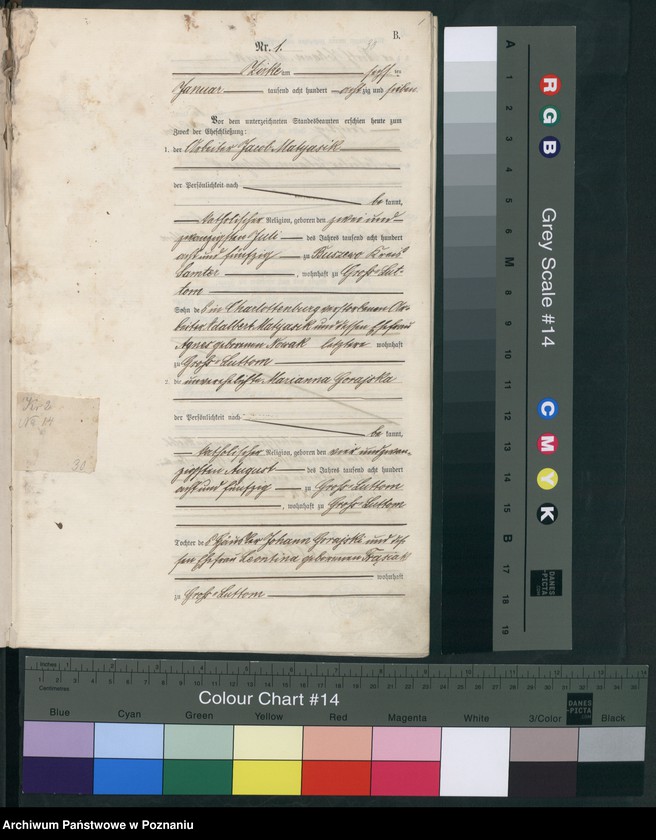 B.
Nr. 1.
Zirke am
Januar tausend acht hundert achtzig und sieben.
Vor dem unterzeichneten Standesbeamten erschien heute zum
Zweck der Eheschließung:
1. der Arbeiter Jacob Matyasik
der Persönlichkeit nach
be kannt,
katholischer Religion, geboren den zwei und
zwanzigsten Juli des Jahres tausend acht hundert
acht und fünfzig zu Buszewo Kreis
Samter, wohnhaft zu Groß Lut-
tom
Sohn des in Charlottenburg verstorbenen Ar-
beiter Adalbert Matyasik und dessen Ehefrau
Agnes geborenen Nowak letztere wohnhaft
zu Groß Luttom
2. die unverehelichte Marianna Gorajska
der Persönlichkeit nach
be kannt,
katholischer Religion, geboren den vier und zwan-
zigsten August des Jahres tausend acht hundert
acht und fünfzig zu Groß Luttom
, wohnhaft zu Groß Luttom
Tochter des Häusler Johann Gorajski und des-
sen Ehefrau Leontina geborenen
wohnhaft
zu Groß Luttom
No 14
A 1 2 3 4 5 6 M 8 9 10 11 12 13 14 15 B 17 18 19
R G B
Grey Scale #14
C M Y K
DANES
-PICTA
.COM
Inches
Centimetres
Colour Chart #14
DANES
-PICTA
.COM
Blue Cyan Green Yellow Red Magenta White 3/Color Black
Archiwum Państwowe w Poznaniu